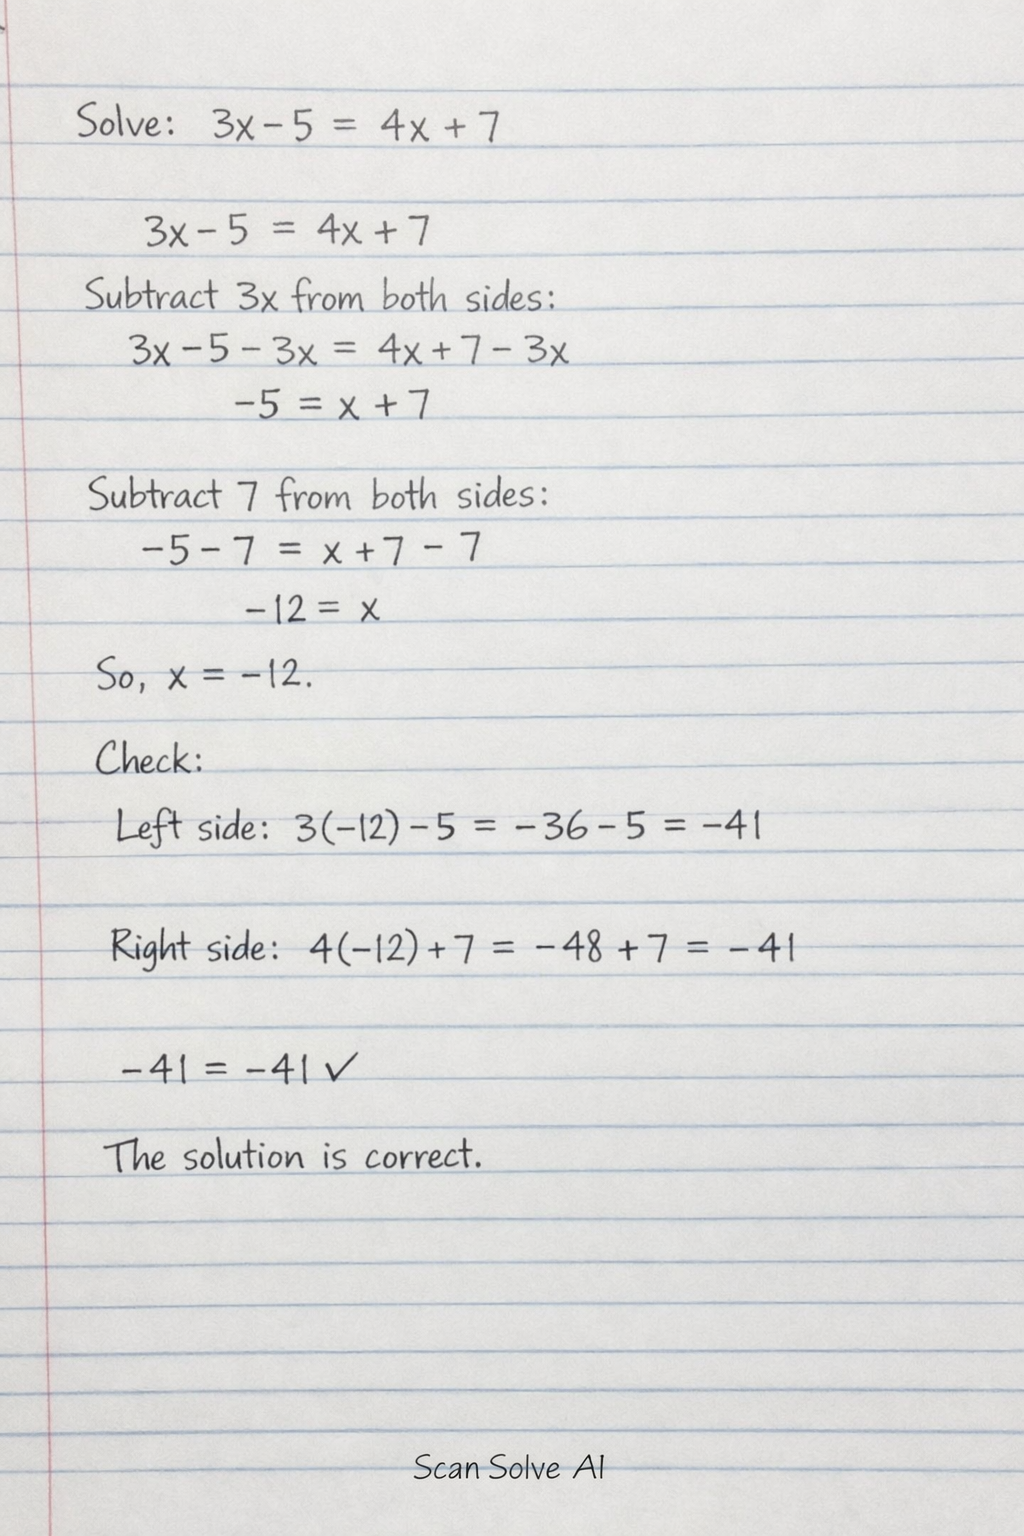 Solve: 3x - 5 = 4x + 7
3x - 5 = 4x + 7
Subtract 3x from both sides:
3x - 5 - 3x = 4x + 7 - 3x
-5 = x + 7
Subtract 7 from both sides:
-5 - 7 = x + 7 - 7
-12 = x
So, x = -12.
Check:
Left side: 3(-12) - 5 = -36 - 5 = -41
Right side: 4(-12) + 7 = -48 + 7 = -41
-41 = -41 ✓
The solution is correct.
Scan Solve AI